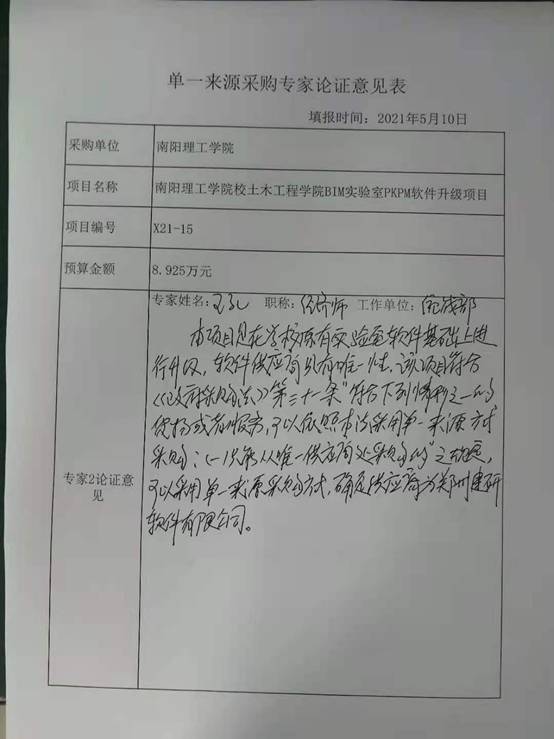 单一来源采购专家论证意见表
填报时间：2021年5月10日
采购单位 南阳理工学院
项目名称 南阳理工学院校土木工程学院BIM实验室PKPM软件升级项目
项目编号 X21-15
预算金额 8.925万元
专家姓名： 职称：经济师 工作单位：
本项目是在学校原有实验室软件基础上进
行升级，软件供应商具有唯一性，该项目符合
《政府采购法》第三十一条"符合下列情形之一的
货物或者服务，可以依照本法采用单一来源方式
采购：（一）只能从唯一供应商处采购的"之规定，
专家2论证意见
可以采用单一来源采购方式，确定供应商为郑州建研
软件有限公司。